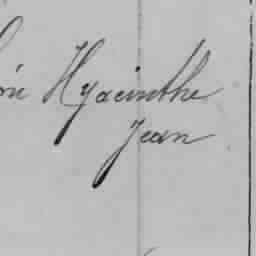 Hyacinthe
Jean